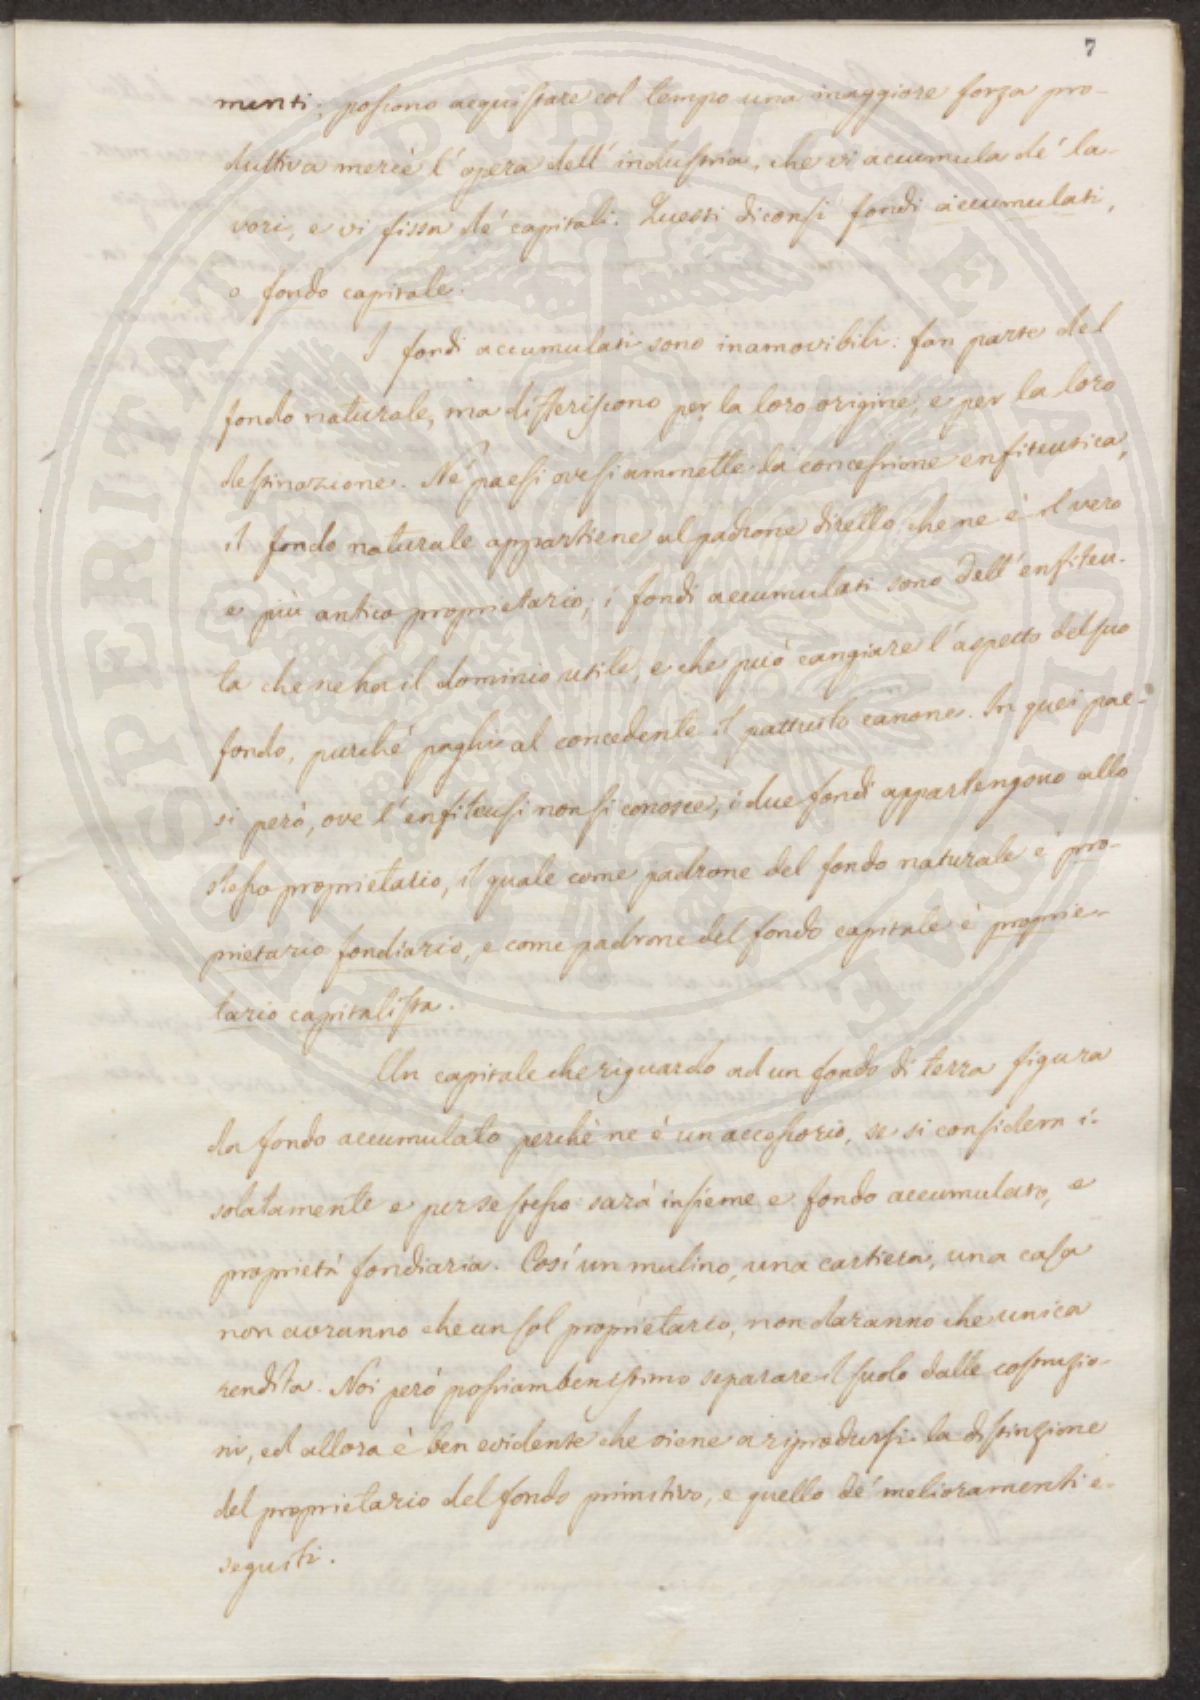 7
menti; possono acquistare col tempo una maggiore forza pro-
duttiva mercè l'opera dell'industria, che vi accumula de' la-
vori, e vi fissa de' capitali. Questi diconsi fondi accumulati,
o fondo capitale.
I fondi accumulati sono inamovibili: fan parte del
fondo naturale, ma differiscono per la loro origine, e per la loro
destinazione. Ne' paesi ove si ammette la concessione enfiteutica,
il fondo naturale appartiene al padrone diretto, che ne è il vero
e più antico proprietario; i fondi accumulati sono dell'enfiteu-
ta che ne ha il dominio utile, e che può cangiare l'aspetto del suo
fondo, purché paghi al concedente il pattuito canone. In quei pae-
si però, ove l'enfiteusi non si conosce, i due fondi appartengono allo
stesso proprietario, il quale come padrone del fondo naturale è pro-
prietario fondiario, e come padrone del fondo capitale è proprie-
tario capitalista.
Un capitale che riguardo ad un fondo di terra figura
da fondo accumulato perchè ne è un accessorio, se si considera i-
solatamente e per se stesso sarà insieme e fondo accumulato, e
proprietà fondiaria. Così un mulino, una cartiera, una casa
non avranno che un sol proprietario, non daranno che unica
rendita. Noi però possiam benissimo separare il suolo dalle costruzio-
ni, ed allora è ben evidente che viene a riprodursi la distinzione
del proprietario del fondo primitivo, e quello de' melioramenti e-
seguiti.
PUBLICAE
PROSPERITATIS